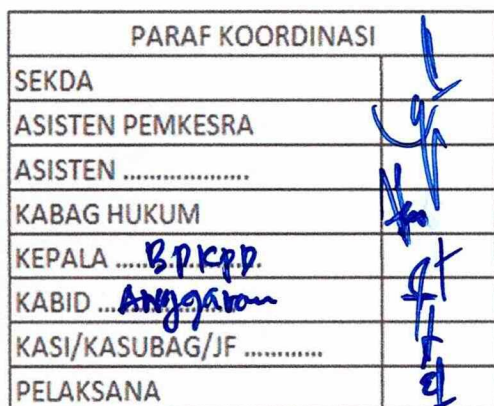 PARAF KOORDINASI
SEKDA
ASISTEN PEMKESRA
ASISTEN ...................
KABAG HUKUM
KEPALA ..... BPKPD.
KABID ... Anggaran
KASI/KASUBAG/JF ............
PELAKSANA